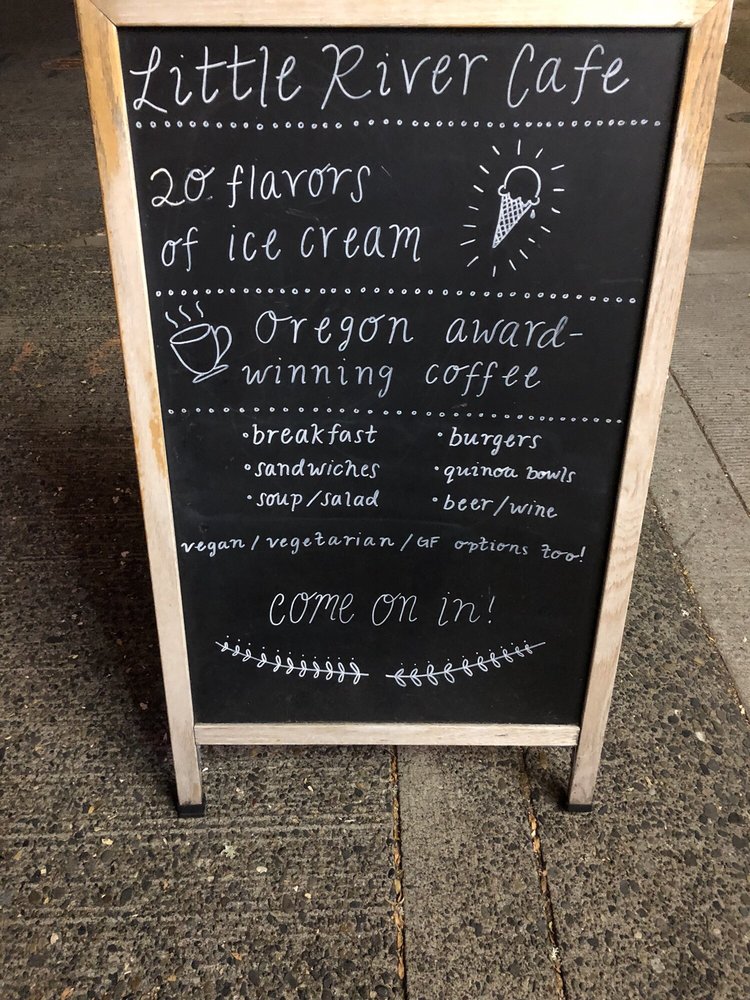 Little River Cafe
20 flavors
of ice cream
Oregon award-
winning coffee
•breakfast •burgers
•sandwiches •quinoa bowls
•soup/salad •beer/wine
vegan/vegetarian/GF options too!
come on in!